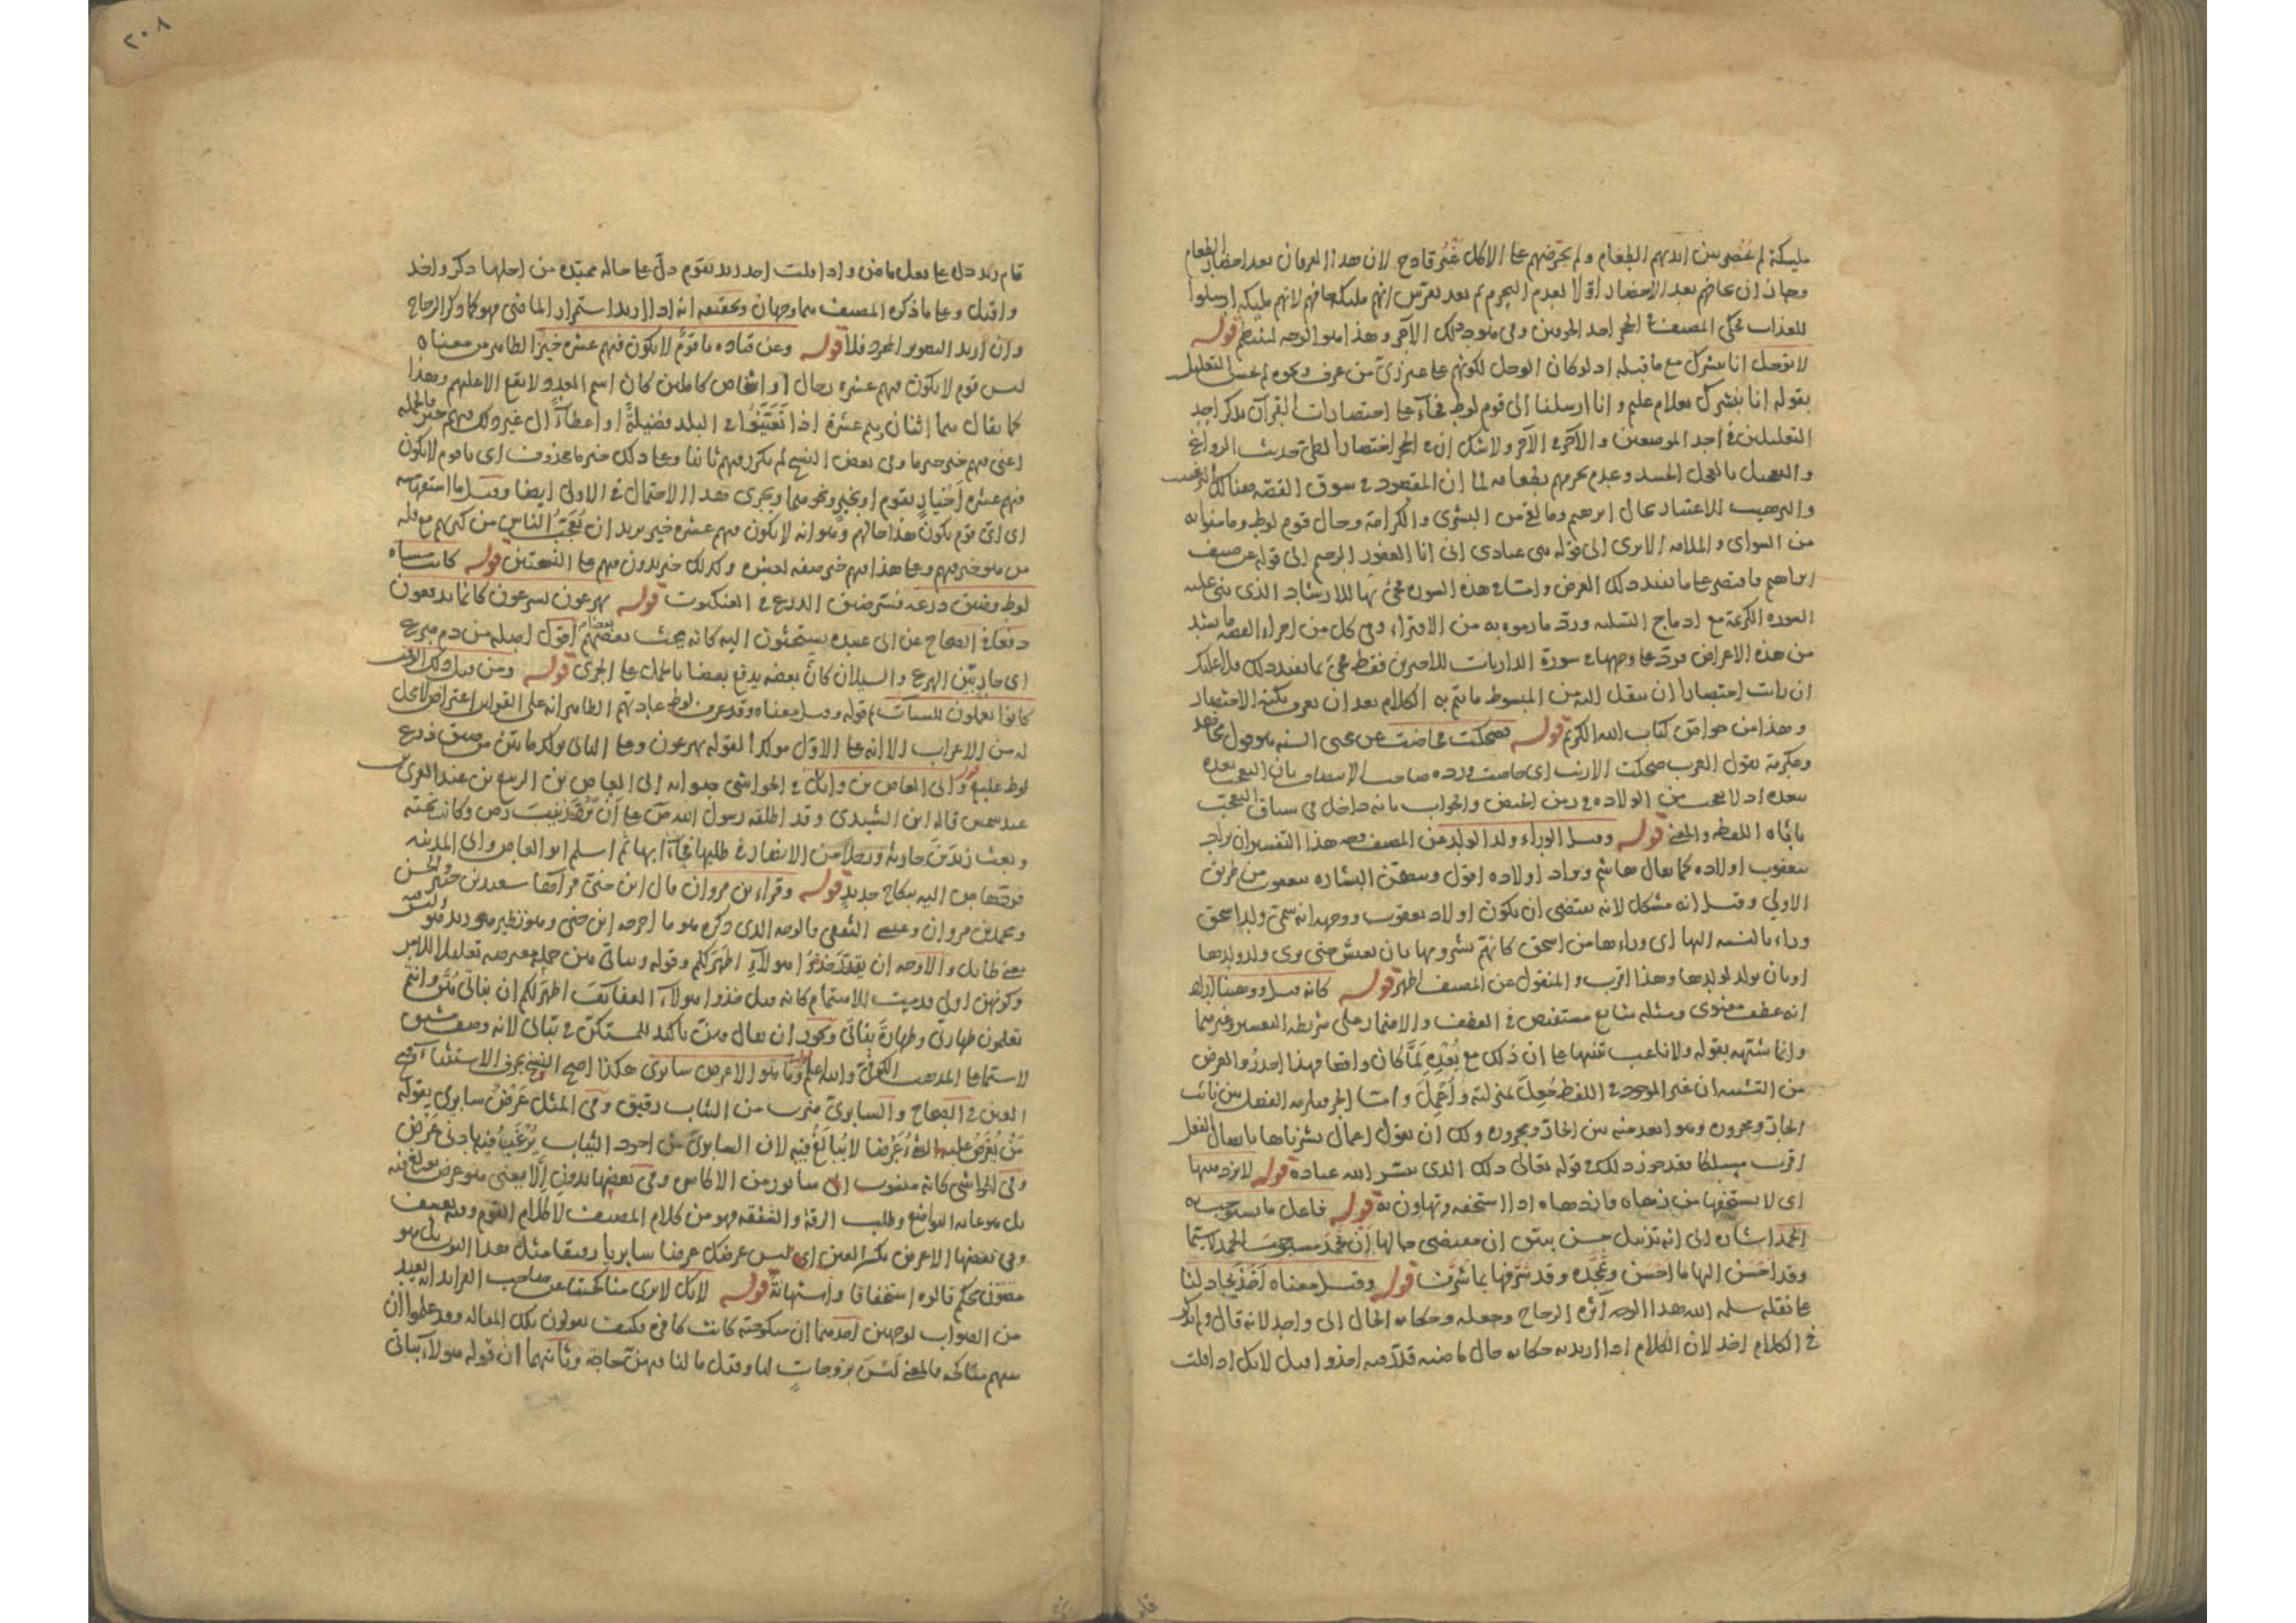 مليكة لم غضوبين ايديهم الطعام ولم يحرضهم على الاكل غير قادح لان هذا العرفان بعد احضار الطعام
وجاز ان يخافهم بعد الاحضار اولا لعدم التحرم ثم بعد تفرس انهم مليكة خافهم لانهم مليكة ارسلوا
للعذاب فحكى المصنف في الحجر احد الخوفين وفي هود ذلك الآخر وهذا هو الوجه لينتظم قوله
لا توجل انا نبشرك مع ما قبله اذ لو كان الوجل لكونهم على غير زي من عرف ونحوه لم يحسن التعليل
بقوله انا نبشرك بغلام عليم وانا ارسلنا الى قوم لوط فجاء على اختصارات القرآن بذكر احد
التعليلين في احد الموضعين والآخر في الآخر ولا شك ان في الحجر اختصارا لطي حديث الرواغ
والتعجيل بالعجل الحنيذ وعدم تحرمهم بطعامه لما ان المقصود في سوق القصة هنالك الترغيب
والترهيب للاعتبار بحال ابرهيم وما لقي من البشرى والكرامة وحال قوم لوط وما منوا به
من السواى والملامة الا يرى الى قوله نبئ عبادي اني انا الغفور الرحيم الى قوله عن ضيف
ابراهيم فاقتصر على ما يفيد ذلك الغرض واما في هذه السورة فجئ بها للارشاد الذي بنى عليه
السورة الكريمة مع ادماج التسلية ورد ما رموه به من الافتراء وفي كل من اجزاء القصة ما يسد
من هذه الاغراض فرد على وجهها في سورة الذاريات للاخيرين فقط فجئ بما يفيد ذلك فلا عليك
ان رايت اختصارا ان تنقل اليه من المبسوط ما يتم به الكلام بعد ان تعرف نكتة الاختصار
وهذا من خواص كتاب الله الكريم قوله فضحكت فحاضت عن محيي السنة هو قول مجاهد
وعكرمة تقول العرب ضحكت الارنب اي حاضت ورده صاحب الانتصاف بان التعجب بعده
يبعده اذ لا تعجب من الولادة في زمن الحيض والجواب بانه داخل في سياق التعجب
ياباه اللفظ والمعنى قوله وقيل الوراء ولد الولد عن المصنف وجه هذا التفسير ان يراد
بيعقوب اولاده كما يقال هاشم ويراد اولاده اقول ويتضمن البشارة بيعقوب من طريق
الاولى وقيل انه مشكل لانه يقتضي ان يكون اولاد يعقوب ووجهه انه سمى ولد اسحق
وراء بالنسبة اليها اي وراءها من اسحق كانهم بشروها بان تعيش حتى ترى ولد ولدها
او بان يولد لولدها وهذا اقرب والمنقول عن المصنف اظهر قوله كانه قيل ووهبنا اراد
انه عطف معنوي ومثله شايع مستفيض في العطف والاضمار على شريطة التفسير وغيرهما
وانما شبهه بقوله ولا ناعب تنبيها على ان ذلك مع بعده لما كان واقعا فهذا اجدر والغرض
من التشبيه ان غير الموجود في اللفظ جعل بمنزلته واعمل واما الجر فيلزمه الفصل بين نائب
الجار ومجروره وهو ابعد منه بين الجار ومجروره ولك ان تقول اعمال بشرناها بابدال الفعل
قوله لا يزدهيها
اي لا يستخفها من زهاه وازدهاه اذا استخفه وتهاون به قوله فاعل ما يستوجب به
الحمد اشارة الى انه تذييل حسن
وقد احسن اليها ما احسن ومجده وقد شرفها بما شرف قوله وقيل معناه اخذ يجادلنا
على نقله سلمه الله هذا الوجه آثره الزجاج وجعله وحكاية الحال الى واحد لانه قال ولم يذكر
في الكلام اخذ لان الكلام اذا اريد به حكاية حال ماضية قدر فيه اخذ واقبل لانك اذا قلت
٢٠٨
قام زيد دل على فعل ماض واذا قلت اخذ زيد يقوم دل على حال ممتدة من اجلها ذكر واخذ
واقبل وعلى ما ذكره المصنف هما وجهان وتحقيقه انه اذا اريد استمرار الماضي فهو كما ذكر الزجاج
وان اريد التصوير المجرد فلا قوله وعن قتادة ما قوم لا يكون فيهم عشرة خير الظاهر من معناه
ليس قوم لا يكون فيهم عشرة رجال او اشخاص كاملين كان اسم العدد لا يقع الا عليهم وهذا
كما يقال هما اثنان وهم عشرة اذا في البلد فضيلة او اعطاء الى غير ذلك فيهم خبر والجملة
اعني فيهم خير خبر ما وفي بعض النسخ لم يكرر فيهم ثانيا وعلى ذلك خبر ما محذوف اي ما قوم لا يكون
فيهم عشرة اخيار بقوم او بخير ونحوهما ويجرى هذا الاحتمال في الاولى ايضا وقيل ما استفهامية
اي اي قوم يكون هذا حالهم وهو انه لا يكون فيهم عشرة خير يريد ان تعجب الناس من كثرتهم مع قلة
من هو خير فيهم وعلى هذا فيهم خير صفة لعشرة وكذلك خير بدون فيهم على النسختين قوله كانت مساة
لوط وضيق ذرعه فسر ضيق الذرع في العنكبوت قوله يهرعون يسرعون كانما يدفعون
دفعا في الصحاح عن ابي عبيدة يستحثون اليه كانه يحث بعضهم بعضا اقول اصله من دم هرع
اي جار بين الهرع والسيلان كان بعضه يدفع بعضا بالحمل على الجري قوله ومن قبل ذلك الوقت
كانوا يعملون السيئات قوله وقيل معناه وقد عرف لوط عادتهم الظاهر انه على القولين اعتراض لا محل
له من الاعراب الا انه على الاول مؤكد لقوله يهرعون وعلى الثاني يؤكد ما بين من ضيق ذرع
لوط عليهم قوله وابي العاص بن وائل في الحواشي صوابه ابي العاص بن الربيع بن عبد العزى بن
عبد شمس قاله ابن الشيدي وقد اطلقه رسول الله ص على ان زينب رض وكانت تحته
وبعث زيد بن حارثة ورجلا من الانصار في طلبها فجاءا بها ثم اسلم ابو العاص واتى المدينة
فردها ص اليه بنكاح جديد قوله وقرا ابن مروان قال ابن جنى قرا بها سعيد بن جبير والحسن
ومحمد بن مروان وعيسى الثقفي والوجه الذي ذكره هو ما اخرجه ابن جنى
والاوجه ان يقدر خذوا هؤلاء اطهر لكم وقوله وبناتي هن جملة معترضة تعليلا للامر
وكونهن اولى قدمت للاهتمام كانه قيل خذوا هؤلاء العفائف اطهر لكم ان بناتي هن وانتم
تعلمون طهارتي وطهارة بناتي ويجوز ان يقال وهن تاكيد للمستكن في بناتي لانه وصف مشتق
لا سيما على المذهب الكوفي والله اعلم قوله وما هو الا عرض سابرى هكذا اصح النسخ بحرف الاستثناء وفتح
العين في الصحاح والسابري ضرب من الثياب رقيق وفي المثل عرض سابري يقوله
من يعرض عليه الشئ عرضا لا يبالغ فيه لان السابري من اجود الثياب يرغب فيه بادنى عرض
وفي الحواشي كانه منسوب الى سابور من الاكاسرة وفي بعضها بدون الا يعني هو عرض بولغ فيه
بل هو غاية التواضع وطلب الرقة والشفقة فهو من كلام المصنف لا كلام القوم
وفي بعضها الا عرض بكسر العين اي ليس عرضك عرضا سابريا رقيقا مثل هذا الثوب بل هو
قالوه استخفافا واستهانة قوله لانك لا ترى مناكحتنا عن صاحب الفرائد انه بعيد
من الصواب لوجهين احدهما ان منكوحته كانت كافرة فكيف يقولون تلك المقالة وقد علموا ان
بينهم مناكحة فالمعنى لسن بزوجات لنا وقيل ما لنا فيهن حاجة وثانيهما ان قوله هؤلاء بناتي